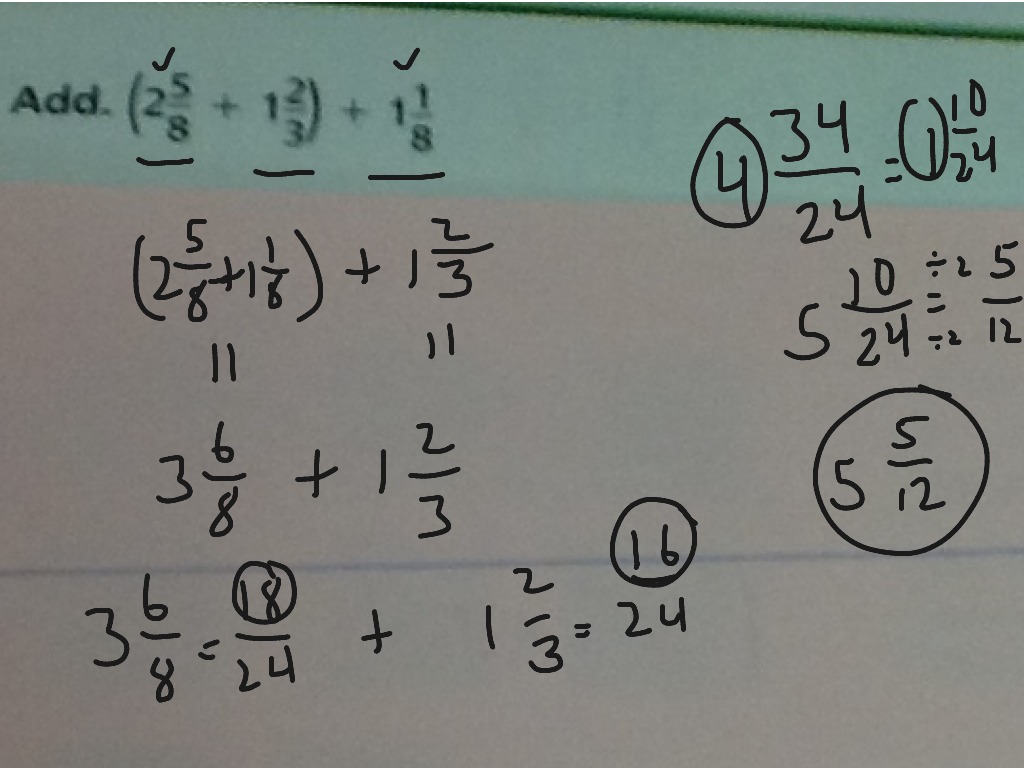 Add. (2 5/8 + 1 2/3) + 1 1/8
(2 5/8 + 1 1/8) + 1 2/3
|| ||
3 6/8 + 1 2/3
3 6/8 = 18/24 + 1 2/3 = 16/24
4 34/24 = 1 10/24
5 10/24 ÷2 = ÷2 5/12
5 5/12